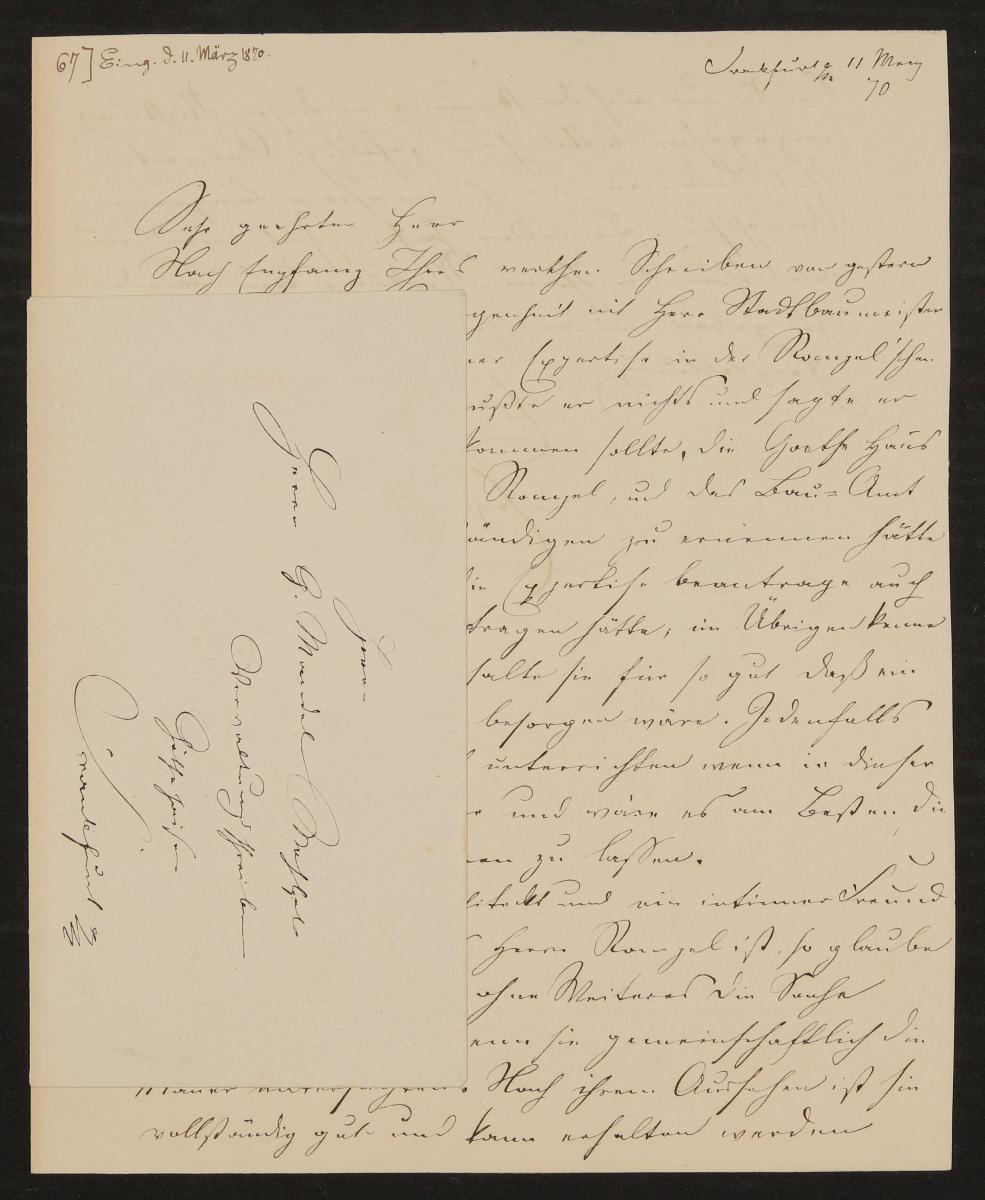 67] Eing. d. 11. März 1870.
Frankfurt a/M 11 Merz
70
Sehr geehrter Herr
Nach Empfang Ihres werthen Schreiben von gestern
genheit mit Herr Stadtbaumeister
ner Expertise in der Rompel'schen
ußte er nichts und sagte er
kommen sollte, die Goethe Haus
Rompel, und das Bau=Amt
ändigen zu ernennen hätte
die Expertise beantrage auch
tragen hätte; im Übrigen kenne
halte sie für so gut daß ein
besorgen wäre. Jedenfalls
unterrichten wenn in dieser
und wäre es am Besten die
en zu lassen.
hitekt und ein intimer Freund
Herrn Rompel ist, so glaube
ohne Weiteres die Sache
enn sie gemeinschaftlich die
Mauer untersuchten. Nach ihrem Aussehen ist sie
vollständig gut und kann erhalten werden
Herrn
Herrn G. Mandel
Verwaltungsschreiber
Frankfurt a/M